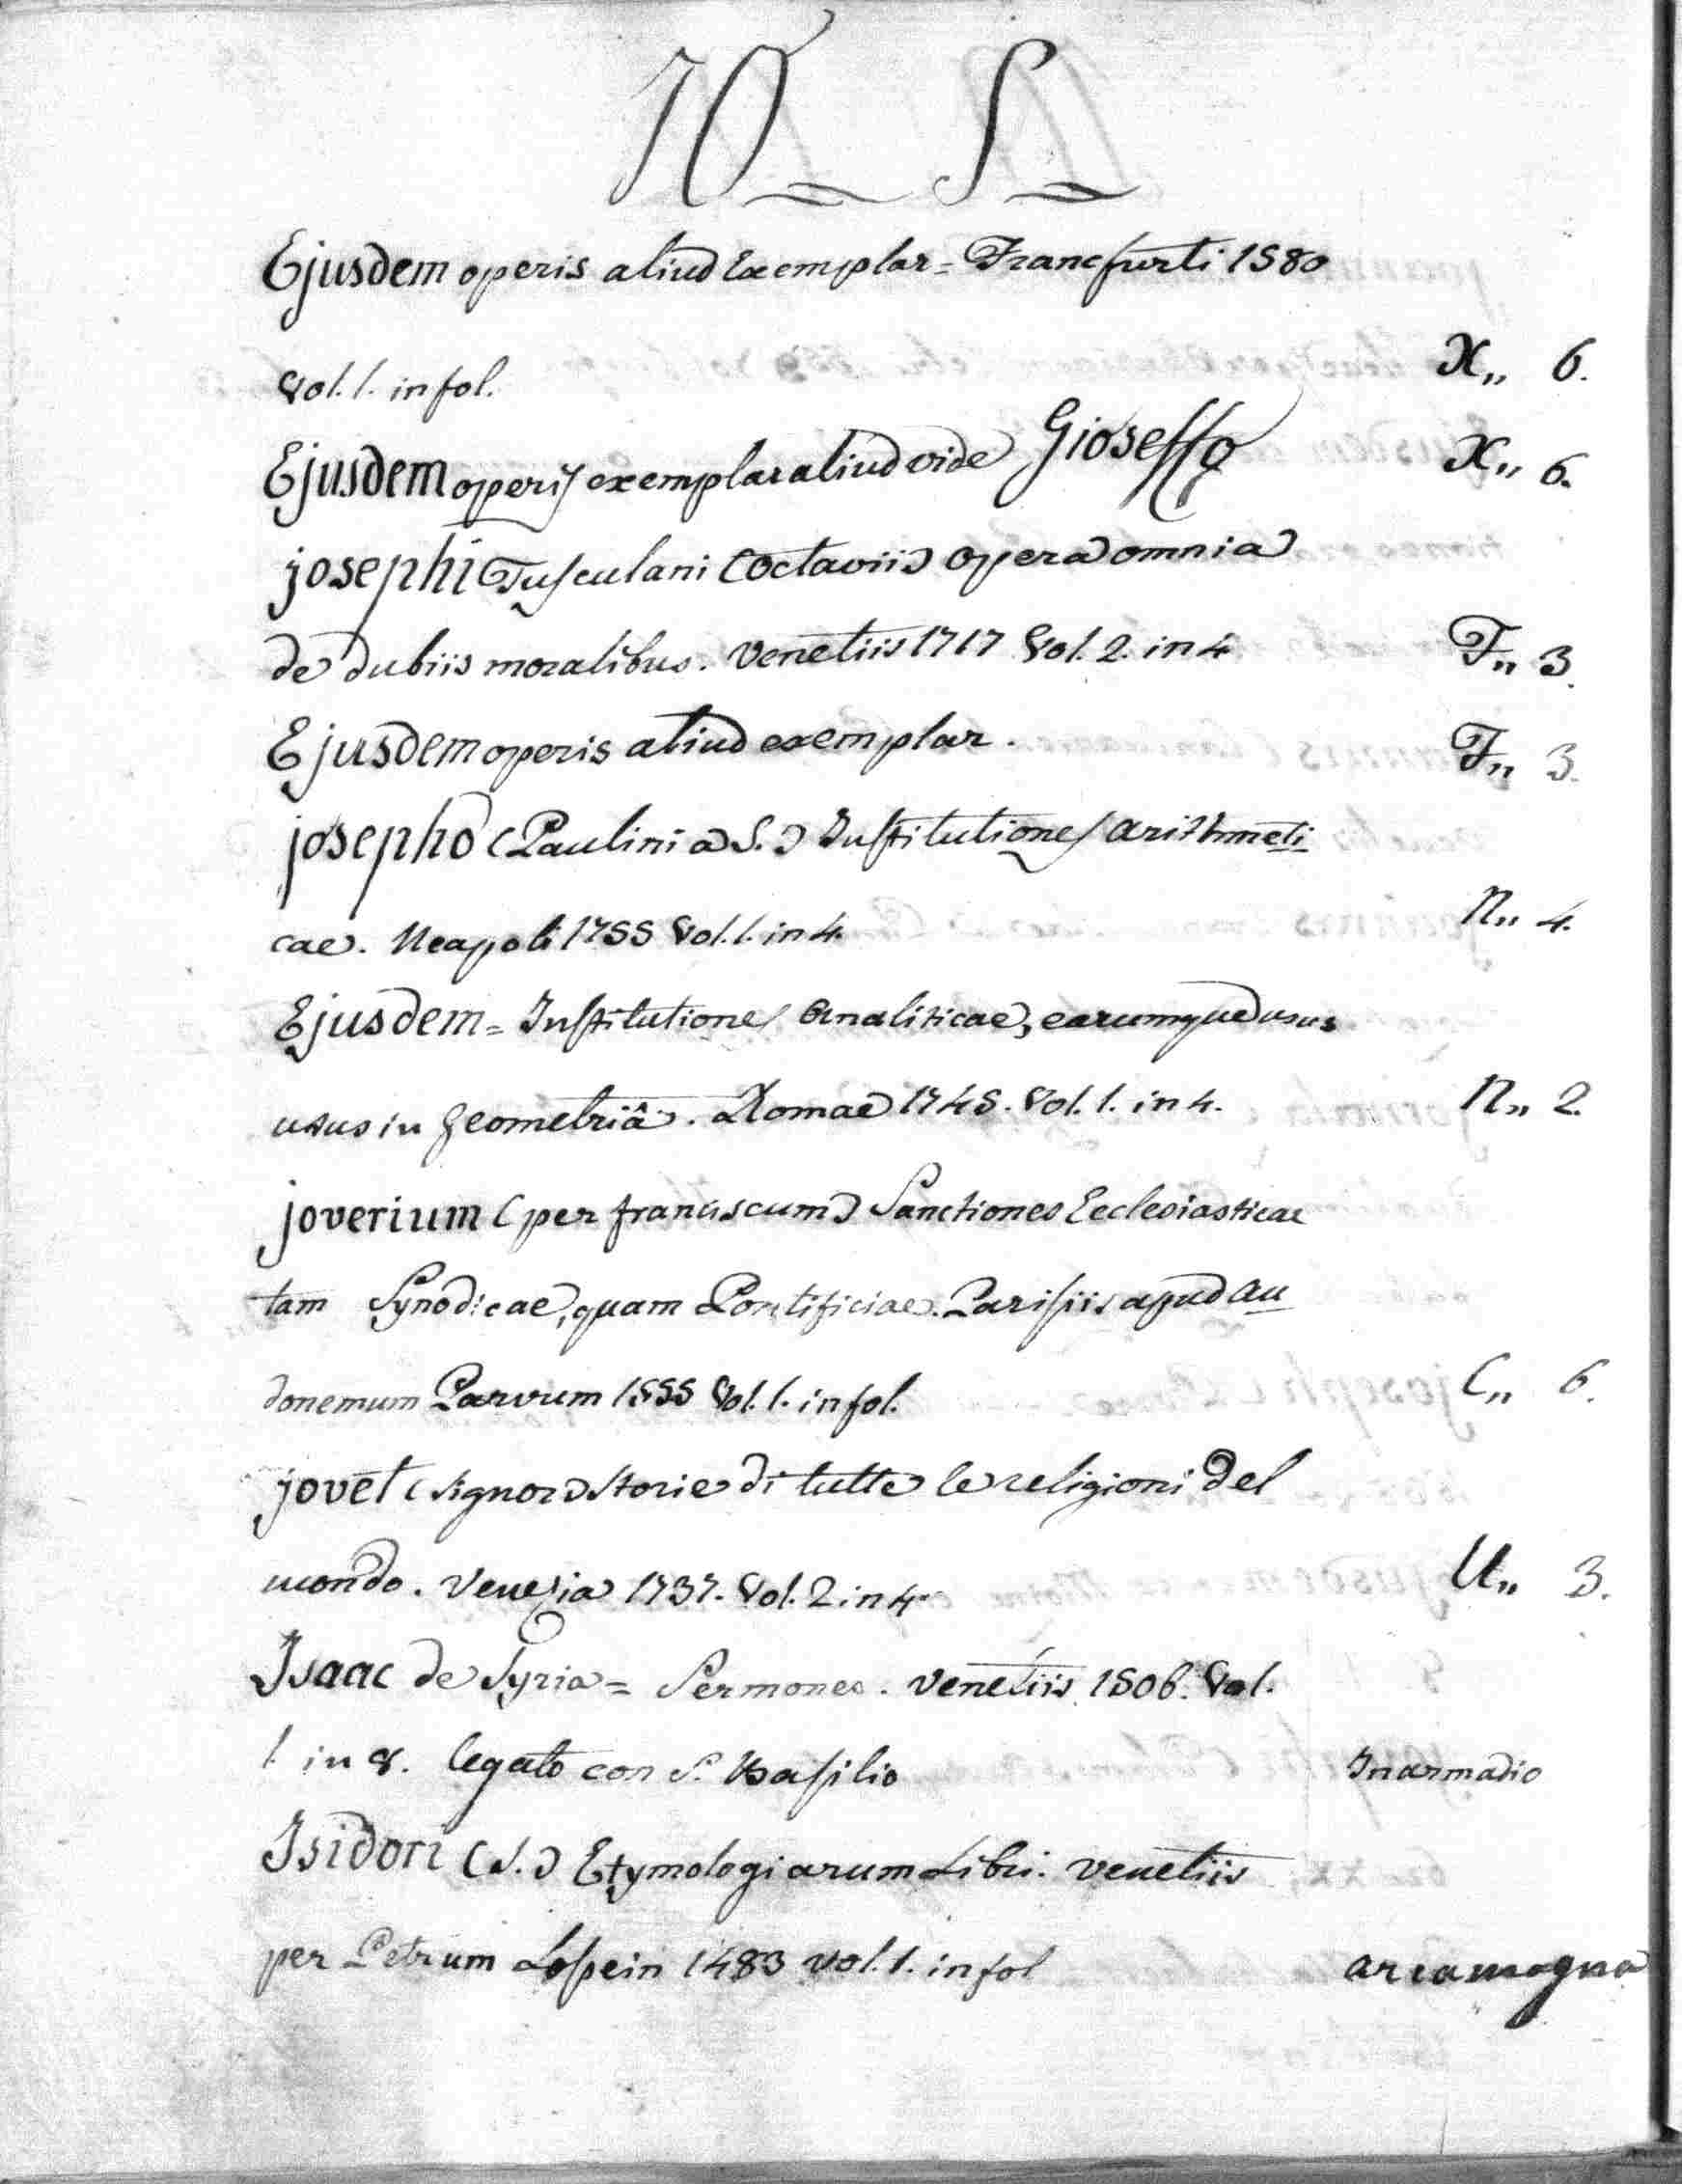 JO S
Ejusdem operis aliud Exemplar = Francfurti 1580
Vol. 1. in fol. X,, 6.
Ejusdem operis exemplar aliud vide Gioseffo X,, 6.
josephi Tusculani (Octavii) opera omnia
de dubiis moralibus. Venetiis 1717 Vol. 2. in 4 F,, 3.
Ejusdem operis aliud exemplar. F,, 3.
josepho (Paulini a S.) Institutiones arithmeti
cae. Neapoli 1755 Vol. 1. in 4. N,, 4.
Ejusdem = Institutiones Analiticae, earumque usus
usus in geometriâ. Romae 1745. Vol. 1. in 4. N,, 2.
joverium (per franciscum) Sanctiones Ecclesiasticae
tam Synodicae, quam Pontificiae. Parisiis apud au
donemum Parvum 1555 Vol. 1. in fol. C,, 6.
jovet (signor) storie di tutte le religioni del
mondo. Venezia 1737. Vol. 2 in 4. U,, 3.
Isaac de Syria = Sermones. Venetiis 1506. Vol.
1. in 8. legato con S. Basilio In armadio
Isidori (S.) Etymologiarum Libri. Venetiis
per Petrum Lospein 1483 Vol. 1. in fol arca magna